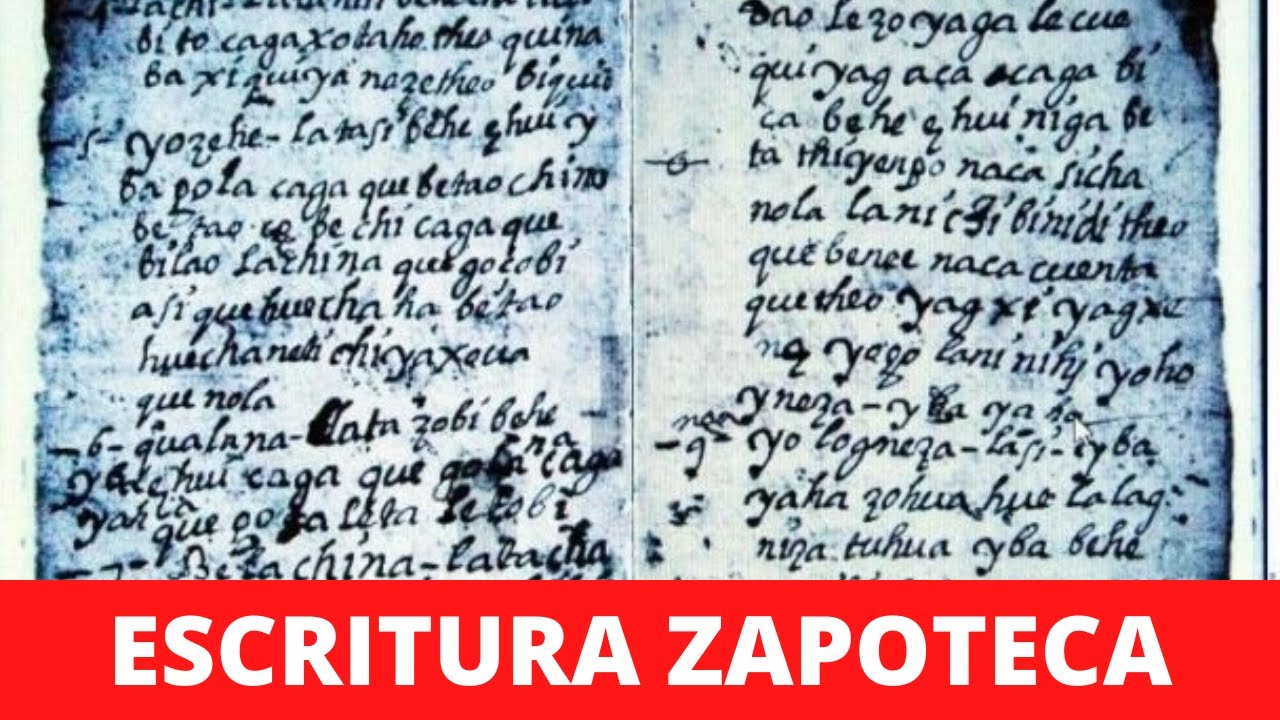 bi to cagaxotaho theo quina
ba xi quiya nazetheo biquie
-5- yozehe-latasi behe ȩhui y
ba pola caga que betao chino
be tao co be chi caga que
bilao lachina que gocobi
asi que huechaha betao
huechaneti chi yaxoua
que nola
-6- qualana-lata zobi behe
caga que
yahla que
leta lecobi
-7- Betachina-labacha
dao lezo yaga lecue
qui yag aca caga bi
ça bȩhe ȩhui niga be
ta thiyenpo naca sicha
nola lani çibinidi theo
que benee naca cuenta
que theo yagxi yagxe
yoho
yneza-
-9- yo logneza-lasi-yba
yaha zohua hue lalag
niza tuhua yba behe
ESCRITURA ZAPOTECA